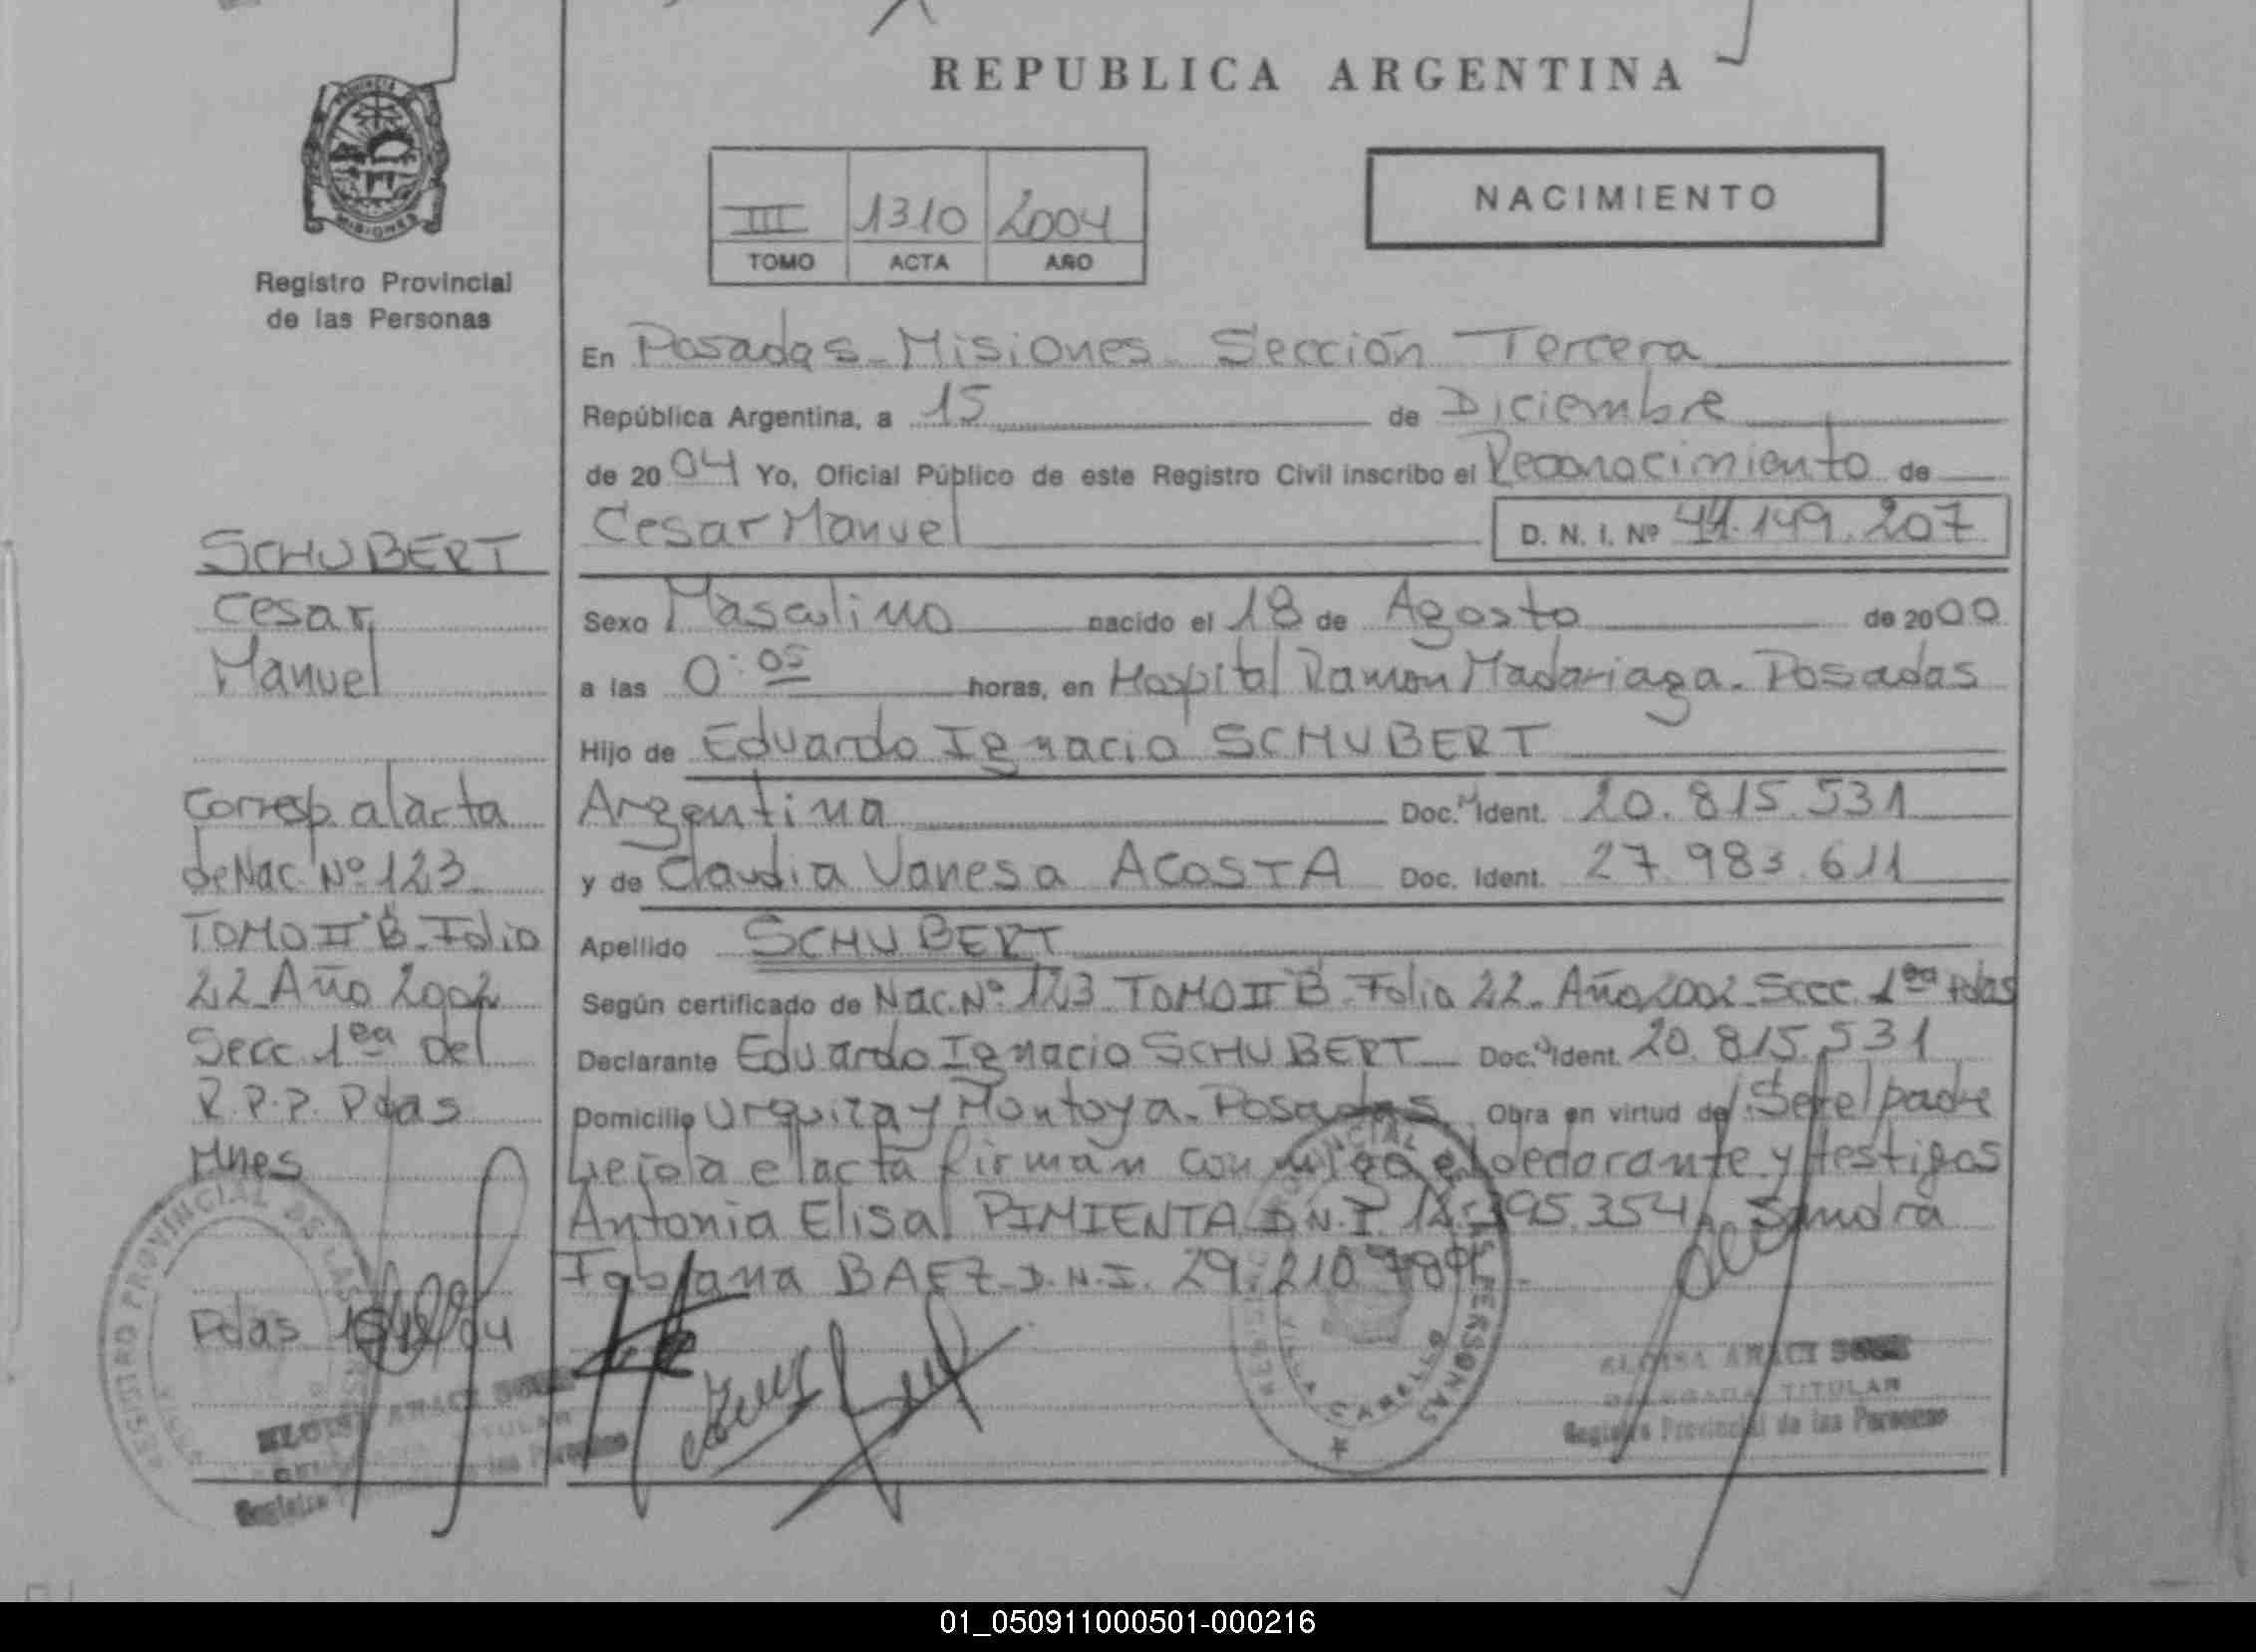 REPUBLICA ARGENTINA
NACIMIENTO
III 1310 2004
TOMO ACTA AÑO
PROVINCIA
MISIONES
Registro Provincial
de las Personas
En Posadas - Misiones - Sección Tercera
República Argentina, a 15 de Diciembre
de 2004 Yo, Oficial Público de este Registro Civil inscribo el Reconocimiento de
Cesar Manuel D. N. I. Nº 44.149.207
Sexo Masculino nacido el 18 de Agosto de 2000
a las 0:05 horas, en Hospital Ramon Madariaga - Posadas
Hijo de Eduardo Ignacio SCHUBERT
Argentina Doc. Ident. 20.815.531
y de Claudia Vanesa ACOSTA Doc. Ident. 27.983.611
Apellido SCHUBERT
Según certificado de Nac. Nº 123 TOMO II B - Folio 22 - Año 2002 - Secc. 1ea Pdas
Declarante Eduardo Ignacio SCHUBERT Doc. Ident. 20.815.531
Domicilio Urquiza y Montoya - Posadas Obra en virtud de Ser el padre
Leida el acta firman conmigo el declarante y testigos
Antonia Elisa PIMIENTA D.N.I. 12.395.354, Sandra
Fabiana BAEZ - D.N.I. 29.210
SCHUBERT
Cesar
Manuel
Corresp. al acta
de Nac. Nº 123
TOMO II B - Folio
22 Año 2002
Secc 1ea del
R.P.P. Pdas
Mnes
Pdas 15/12/04
REGISTRO PROVINCIAL DE LAS PERSONAS
DELEGADA TITULAR
Registro Provincial de las Personas
01_050911000501-000216